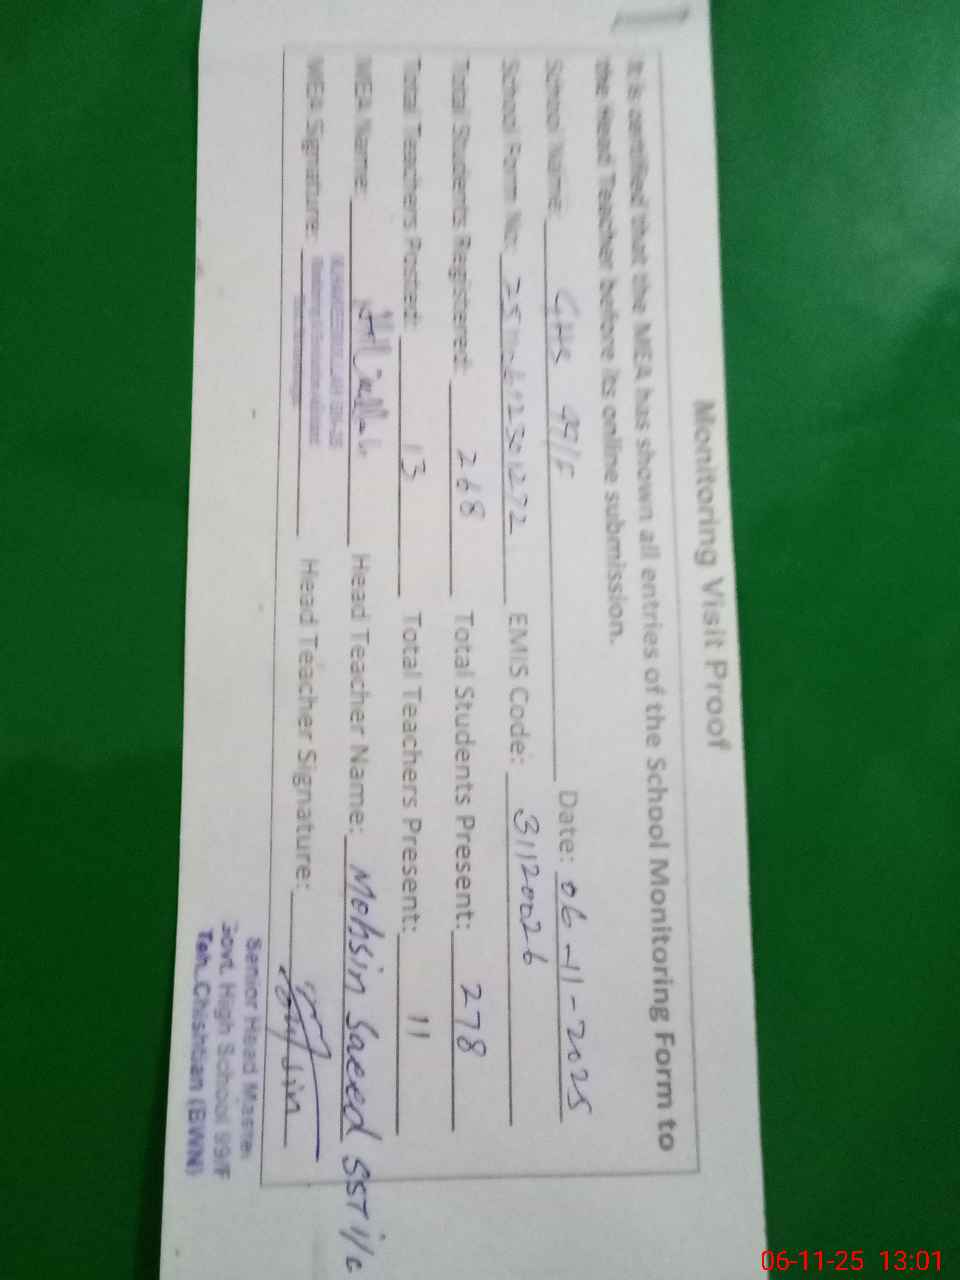 Monitoring Visit Proof
It is certified that the MEA has shown all entries of the School Monitoring Form to
the Head Teacher before its online submission.
School Name: GHS 99/F Date: 06-11-2025
School Form No: EMIS Code: 31120026
Total Students Registered: 268 Total Students Present: 278
Total Teachers Posted: 13 Total Teachers Present: 11
MEA Name: Head Teacher Name: Mohsin Saeed SST i/c
MEA Signature: Head Teacher Signature:
Senior Head Master
Govt. High School 99/F
Teh. Chishtian (BWN)
06-11-25 13:01